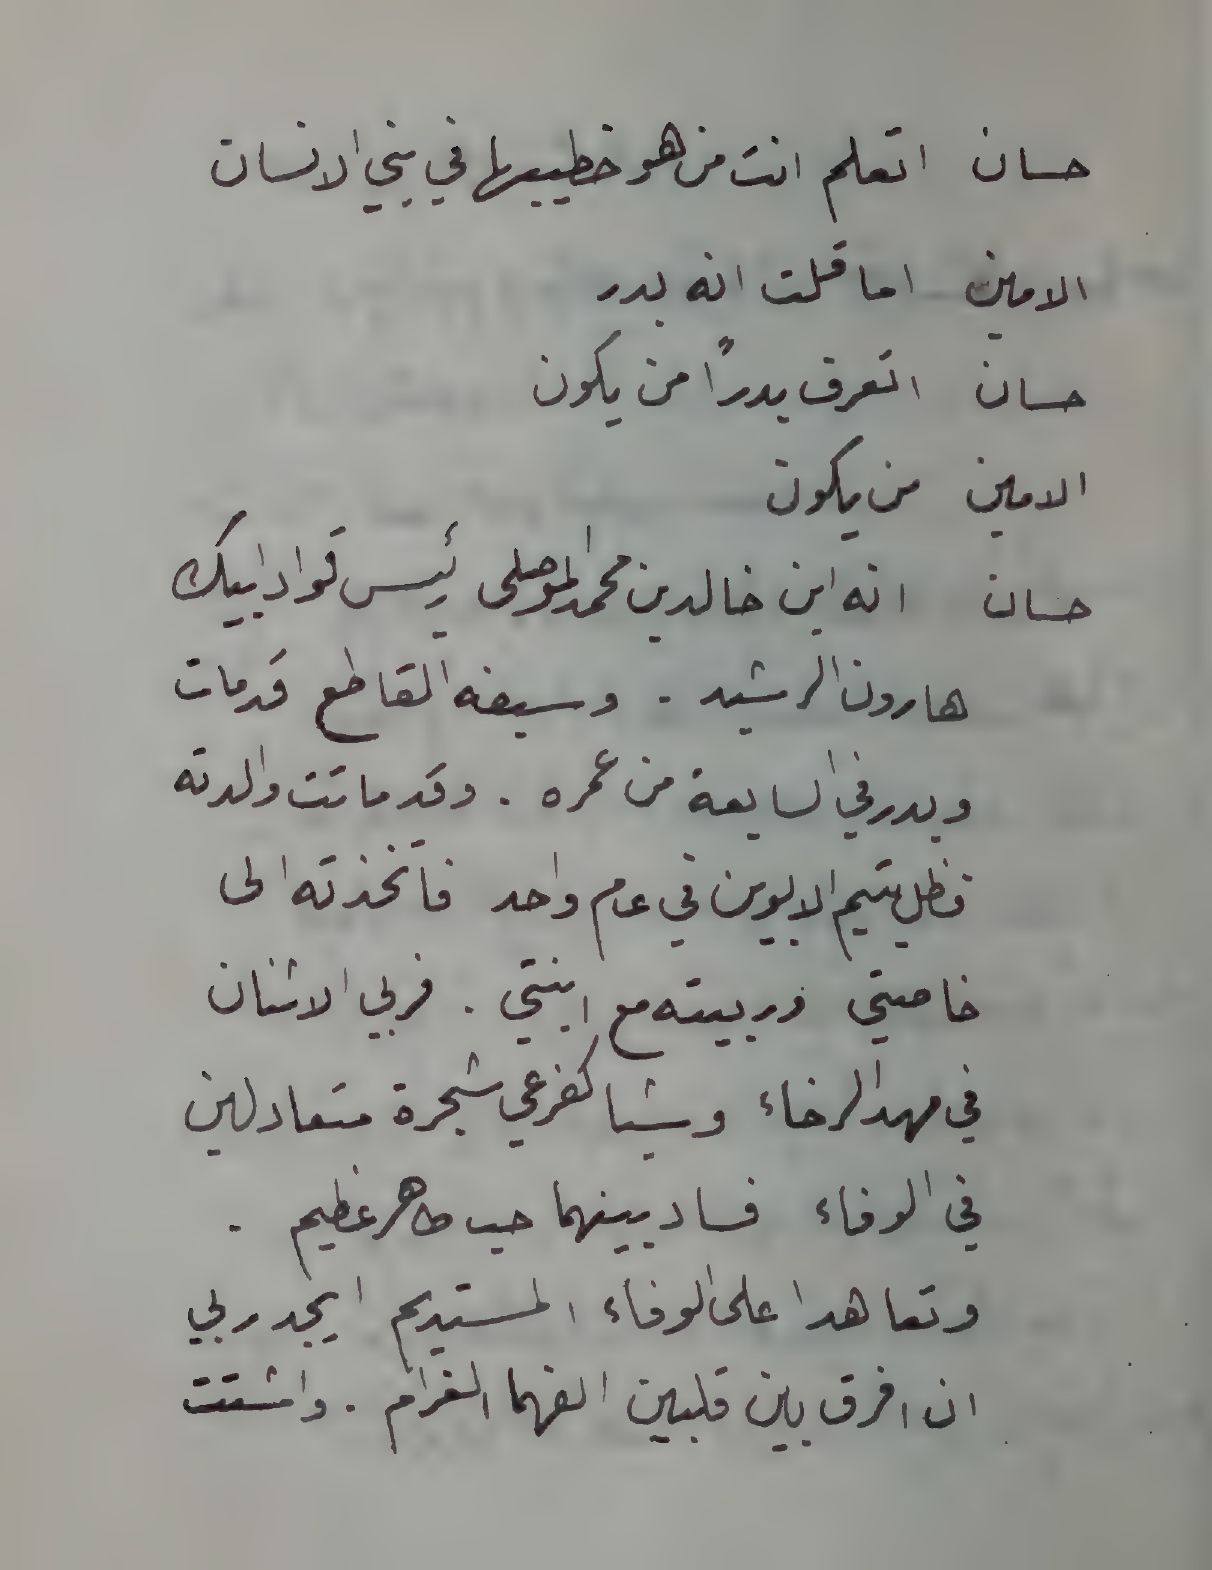 حسان اتعلم انت من هو خطيبها في بني الانسان
الامين اما قلت انه بدر
حسان اتعرف بدرًا من يكون
الامين من يكون
حسان انه ابن خالد بن محمد الموصلى ئيس قواد ابيك
هارون الرشيد . وسيفه القاطع قد مات
وبدر في السابعة من عمره . وقد ماتت والدته
فظل يتيم الابوين في عام واحد فاتخذته الى
خاصتي وربيته مع ابنتي . فربي الاثنان
في مهد الرخاء وشبا كفرعي شجرة متعادلين
في الوفاء فساد بينهما حب طاهر عظيم .
وتعاهدا على الوفاء المستديم ايجدر بي
ان افرق بين قلبين الفهما الغرام . واشتت